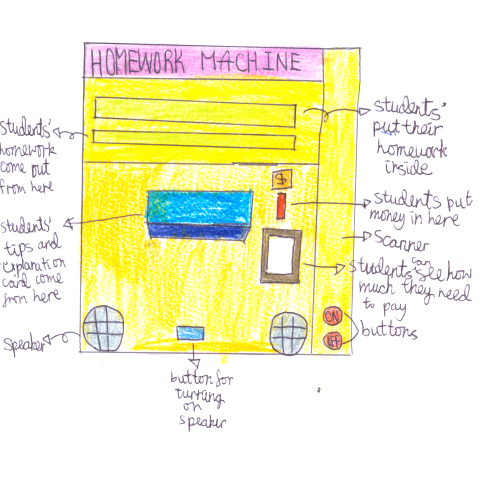 HOMEWORK MACHINE
students'
put their
homework
inside
students'
homework
come out
from here
$
students put
money in here
scanner
students can see how
much they need
to pay
students'
tips and
explanation
card come
from here
ON
OFF
buttons
speaker
button for
turning
on
speaker